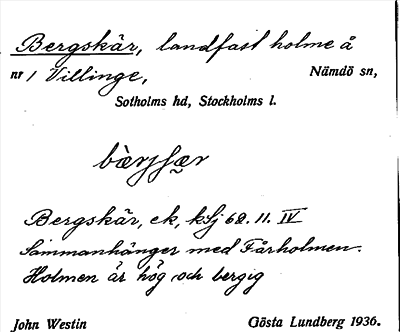 Bergskär, landfast holme å
nr 1 Villinge, Nämdö sn,
Sotholms hd, Stockholms l.
Bergskär, ek, kSj 68. 11. IV
Sammanhänger med Fårholmen.
Holmen är hög och bergig
John Westin Gösta Lundberg 1936.